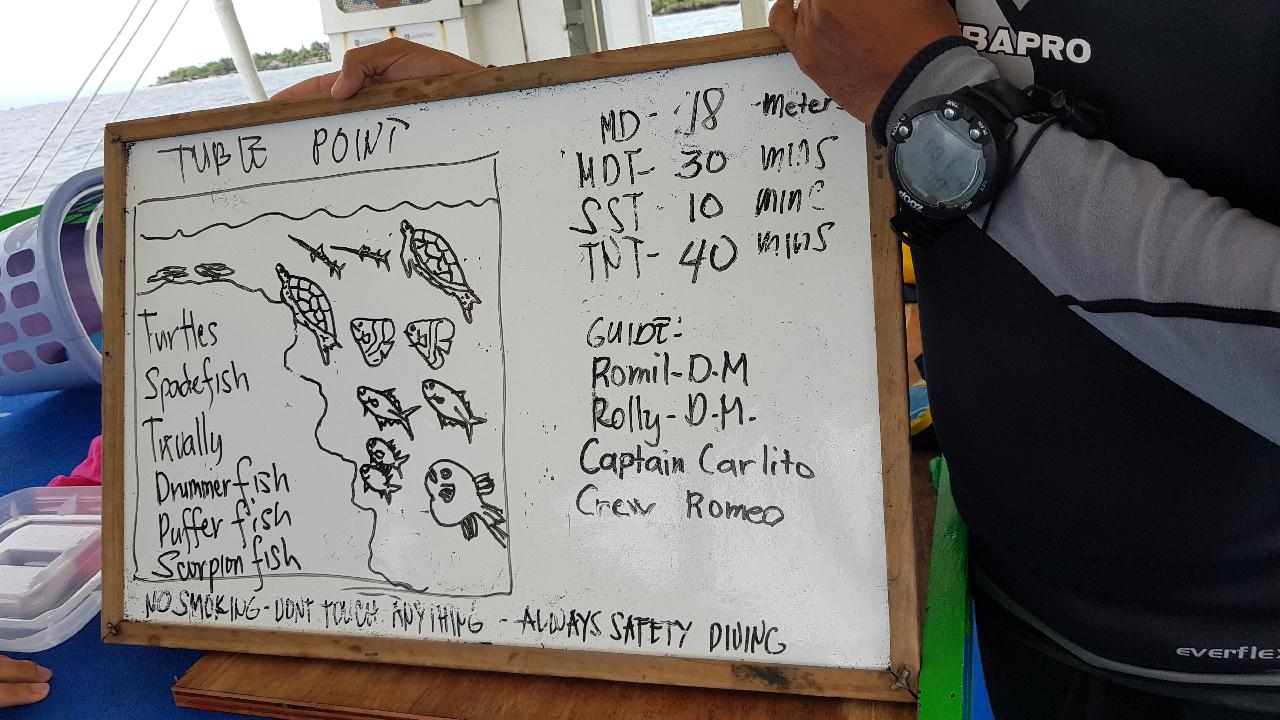 TUBLE POINT
Turtles
Spadefish
Tirually
Drummerfish
Puffer fish
Scorpion fish
NO SMOKING - DONT TOUCH ANYTHING - ALWAYS SAFETY DIVING
MD- 18 Meter
MDT- 30 mins
SST- 10 mins
TNT- 40 mins
GUIDE:
Romil-D.M
Rolly-D.M.
Captain Carlito
Crew Romeo
BAPRO
ZOOP
everflex